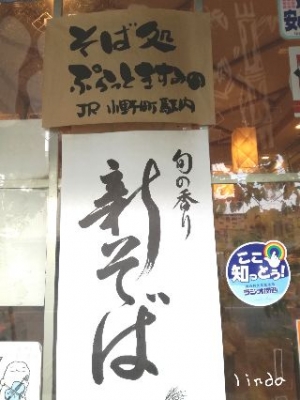 そば処
ぷらっとますみの
JR 小野町駅内
旬の香り
新そば
ここ
知っとう!
ラジオ関西
linda
安